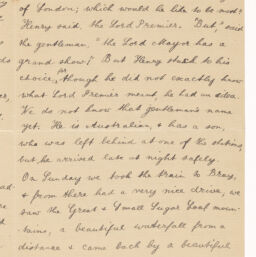 of London; which would he like to be most?
Henry said, the Lord Premier. "But," said
the gentleman, "the Lord Mayor has a
grand show!" But Henry stuck to his
choice, tho though he did not exactly know
what Lord Premier meant, he had an idea.
We do not know that gentleman's name
yet. He is Australian, & has a son,
who was left behind at one of the stations,
but he arrived late at night safely.
On Sunday we took the train to Bray,
& from there had a very nice drive, we
saw the Great & Small Sugar Loaf moun-
tains, a beautiful waterfall from a
distance & came back by a beautiful